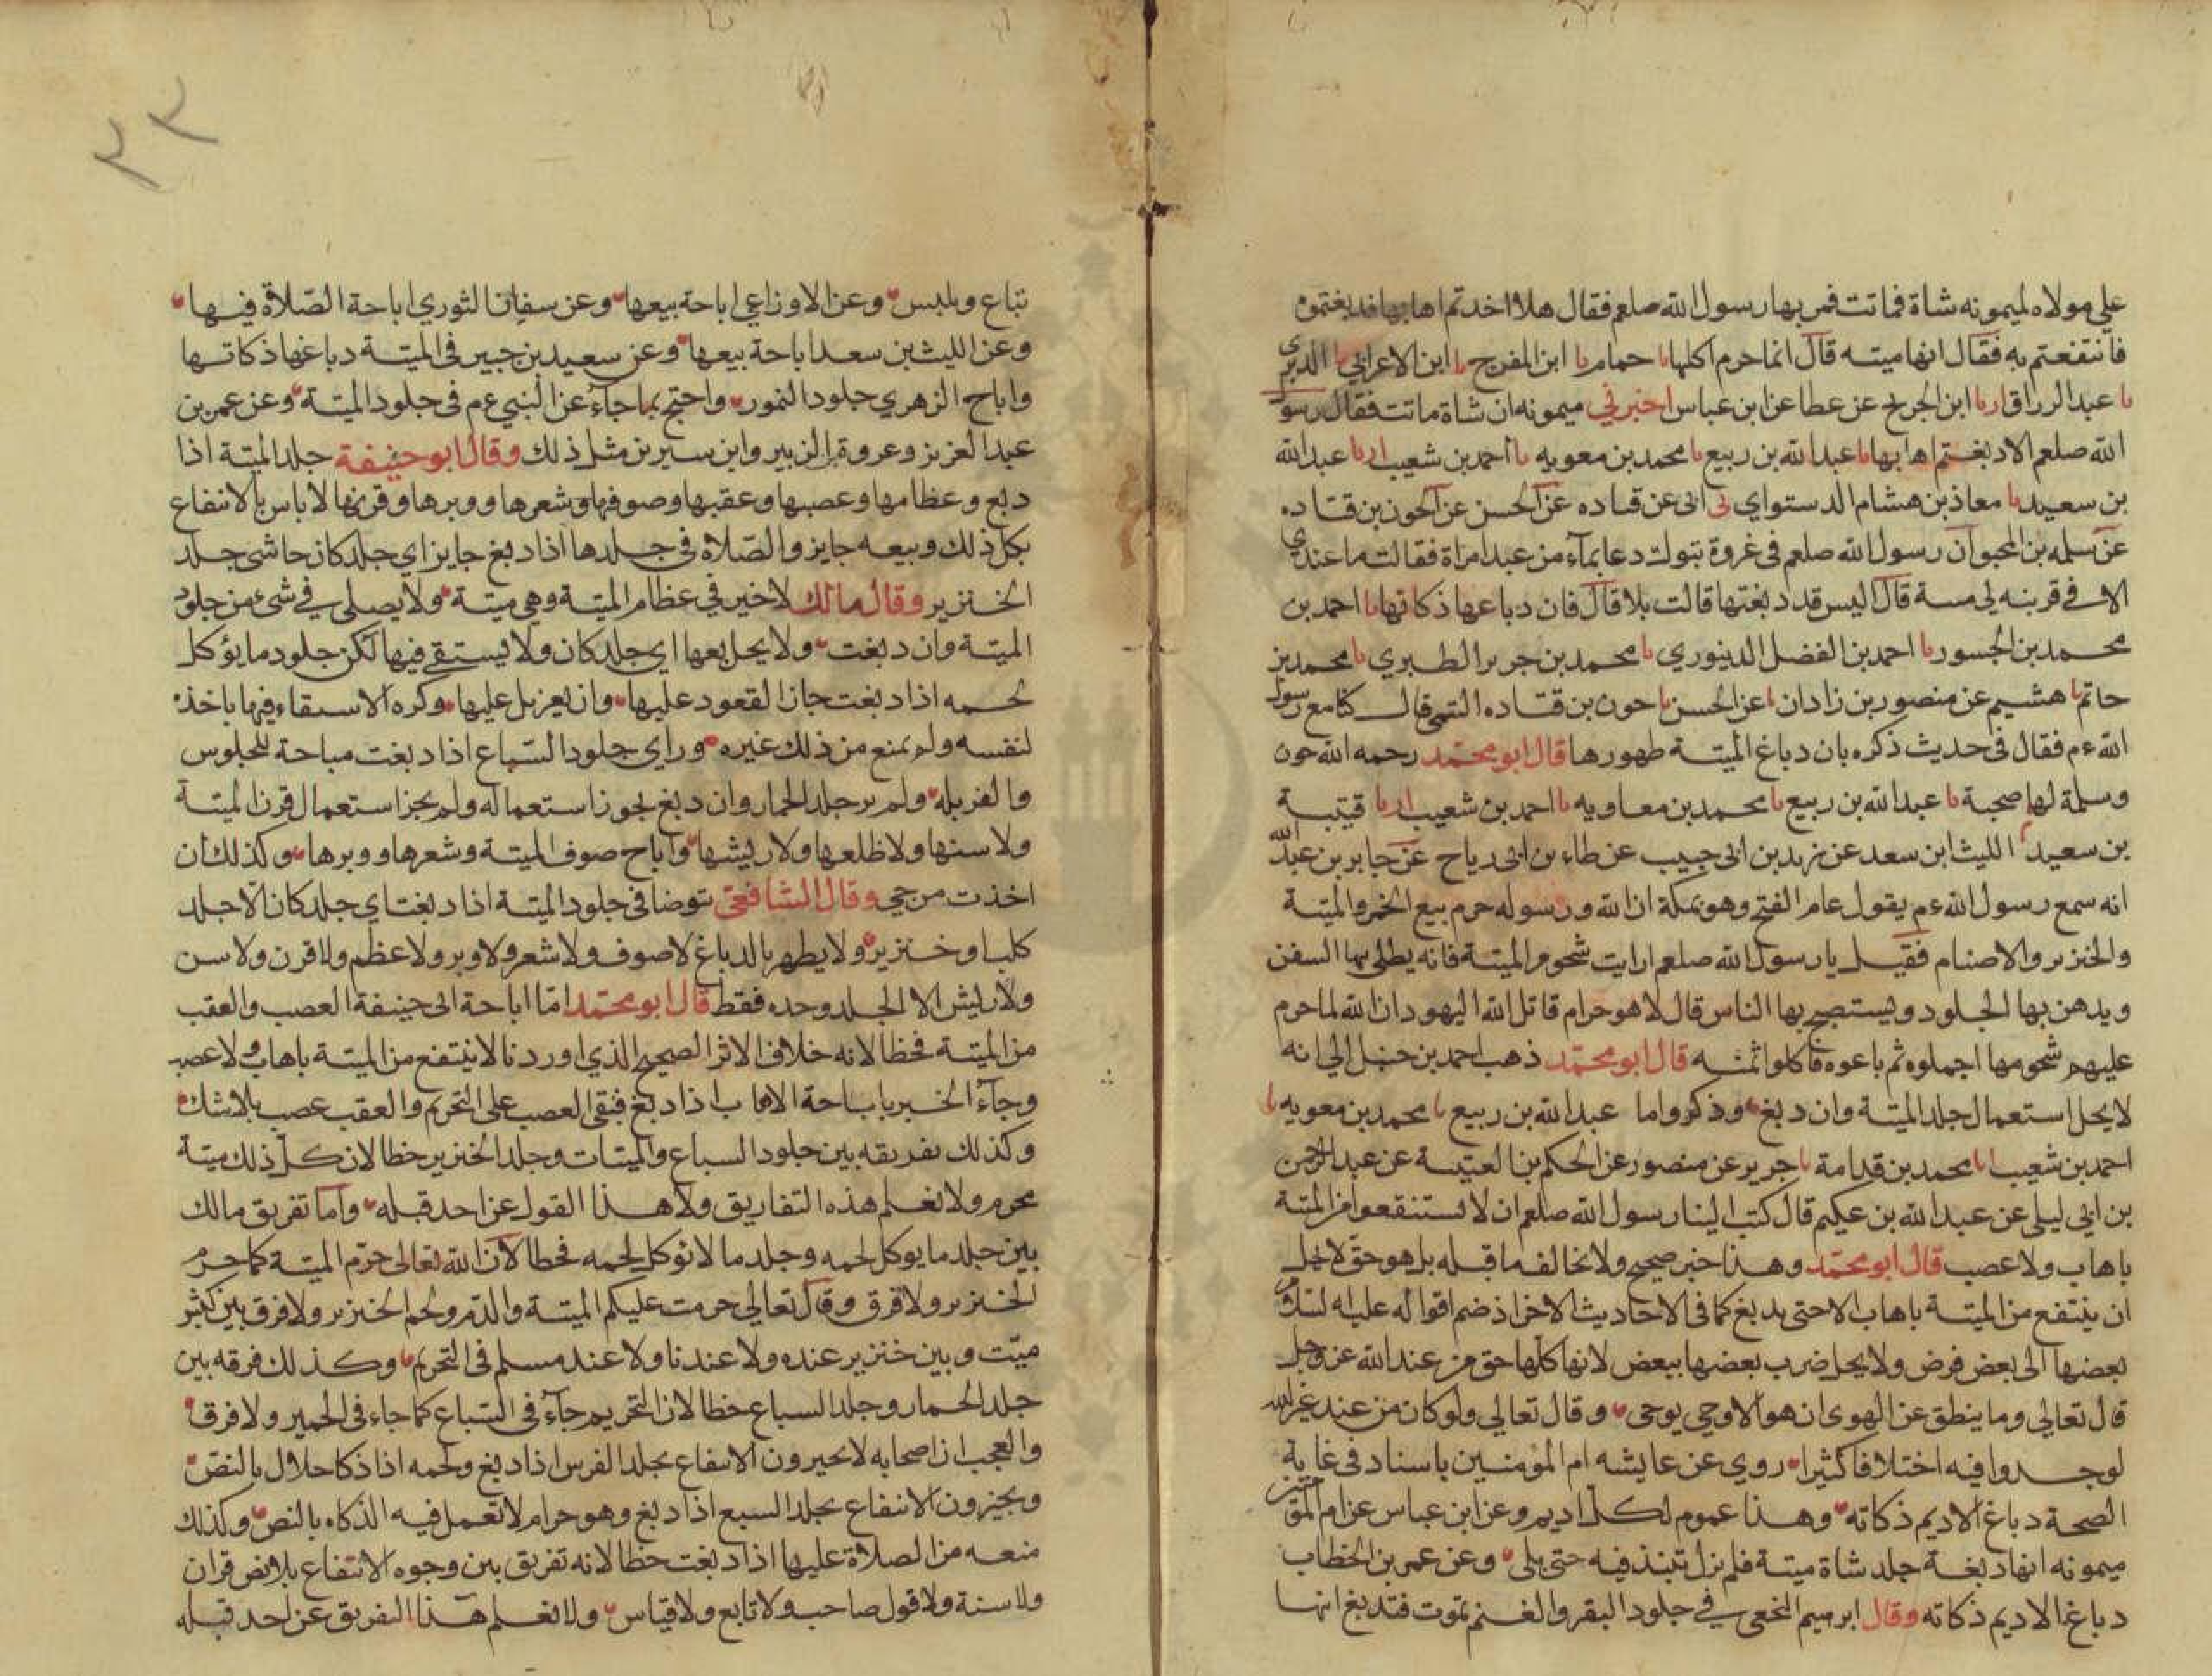 علي مولاه لميمونه شاة فماتت فمر بها رسول الله صلعم فقال هلا اخدتم اهابها فدبغتموه
فانتفعتم به فقال انها ميته قال انما حرم اكلها نا حمام نا ابن المفرج نا ابن الاعرابي نا الدبري
نا عبد الرزاق ارنا ابن الجريح عن عطا عن ابن عباس اخبرتني ميمونه ان شاة ماتت فقال رسول
الله صلعم الا دبغتم اهابها نا عبد الله بن ربيع نا محمد بن معويه نا احمد بن شعيب ارنا عبد الله
بن سعيد نا معاذ بن هشام الدستواي ني ابي عن قتاده عن الحسن عن الجون بن قتاده
عن سلمه بن المحبق ان رسول الله صلعم في غزوة تبوك دعا بماء من عند امراة فقالت ما عندي
الا في قربه لي ميتة قال اليس قد دبغتها قالت بلا قال فان دباغها ذكاتها نا احمد بن
محمد بن الجسور نا احمد بن الفضل الدينوري نا محمد بن جرير الطبري نا محمد بن
حاتم نا هشيم عن منصور بن زادان نا عن الحسن نا جون بن قتاده التميمي قال كنا مع رسول
الله ءم فقال في حديث ذكره بان دباغ الميتة طهورها قال ابو محمد رحمه الله جون
وسلمة لها صحبة نا عبد الله بن ربيع نا محمد بن معاويه نا احمد بن شعيب ارنا قيتبة
بن سعيد نا الليث ابن سعد عن يزيد بن ابي حبيب عن عطاء بن ابي رياح عن جابر بن عبد الله
انه سمع رسول الله ءم يقول عام الفتح وهو بمكة ان الله ورسوله حرم بيع الخمر والميتة
والخنزير والاصنام فقيل يا رسول الله صلعم ارايت شحوم الميتة فانه يطلي بها السفن
ويدهن بها الجلود ويستصبح بها الناس قال لا هو حرام قاتل الله اليهود ان الله لما حرم
عليهم شحومها اجملوه ثم باعوه فاكلوا ثمنه قال ابو محمد ذهب احمد بن حنبل الي انه
لا يحل استعمال جلد الميتة وان دبغ وذكروا ما عبد الله بن ربيع نا محمد بن معويه نا
احمد بن شعيب انا محمد بن قدامة نا جرير عن منصور عن الحكم بن العتيبة عن عبد الرحمن
بن ابي ليلي عن عبد الله بن عكيم قال كتب الينا رسول الله صلعم ان لا تستنفعوا من الميتة
باهاب ولا عصب قال ابو محمد وهذا خبر صحيح ولا نخالف ما قبله بل هو حق لا يحل
ان ينتفع من الميتة باهاب الا حتي يدبغ كما في الاحاديث الاخر اذ ضم اقواله عليه السلام
بعضها الي بعض فرض ولا يحل ضرب بعضها ببعض لانها كلها حق من عند الله عز وجل
قال تعالي وما ينطق عن الهوي ان هو الا وحي يوحي وقال تعالي ولو كان من عند غير الله
لوجدوا فيه اختلافا كثيرا روي عن عايشه ام المؤمنين باسناد في غاية
الصحة دباغ الاديم ذكاته وهذا عموم لكل اديم وعن ابن عباس عن ام المؤمنين
ميمونه انها دبغة جلد شاة ميتة فلم نزل تنبذ فيه حتي بلي وعن عمر بن الخطاب
دباغ الاديم ذكاته وقال ابرهيم النخعي في جلود البقر والغنم تموت فتدبغ انها
تباع وتلبس وعن الاوزاعي اباحة بيعها وعن سفيان الثوري اباحة الصلاة فيها
وعن الليث بن سعد اباحة بيعها وعن سعيد بن جبير في الميتة دباغها ذكاتها
واباح الزهري جلود النمور واحتج بما جاء عن النبي ءم في جلود الميتة وعن عمر بن
عبد العزيز وعروة بن الزبير وابن سيرين مثل ذلك وقال ابو حنيفة جلد الميتة اذا
دبغ وعظامها وعصبها وعقبها وصوفها وشعرها ووبرها وقرنها لا باس بالانتفاع
بكل ذلك وبيعه جايز والصلاة في جلدها اذا دبغ جايز اي جلد كان حاشي جلد
الخنزير وقال مالك لا خير في عظام الميتة وهي ميتة ولا يصلي في شيء من جلود
الميتة وان دبغت ولا يحل بيعها اي جلد كان ولا يستقي فيها لكن جلود ما يؤكل
لحمه اذا دبغت جاز القعود عليها وان يغربل عليها وكره الاستقاء فيها باخذه
لنفسه ولم يمنع من ذلك غيره وراي جلود السباع اذا دبغت مباحة للجلوس
والغربله ولم ير جلد الحمار وان دبغ يجوز استعماله ولم يجز استعمال قرن الميتة
ولا سنها ولا ظلعها ولا ريشها واباح صوف الميتة وشعرها ووبرها وكذلك ان
اخذت من حي وقال الشافعي يتوضا في جلود الميتة اذا دبغت اي جلد كان الا جلد
كلب او خنزير ولا يطهر بالدباغ لا صوف ولا شعر ولا وبر ولا عظم ولا قرن ولا سن
ولا ريش الا الجلد وحده فقط قال ابو محمد اما اباحة ابي حنيفة العصب والعقب
من الميتة فخطا لانه خلاف الاثر الصحيح الذي اوردنا لا ينتفع من الميتة باهاب ولا عصب
وجاء الخبر باباحة الاهاب اذا دبغ فبقي العصب علي التحريم والعقب عصب بلا شك
وكذلك تفريقه بين جلود السباع والميتات وجلد الخنزير خطا لان كل ذلك ميتة
محرم ولا نعلم هذه التفاريق ولا هذا القول عن احد قبله واما تفريق مالك
بين جلد ما يوكل لحمه وجلد ما لا يؤكل لحمه فخطا لان الله تعالي حرم الميتة كما حرم
الخنزير ولا فرق وقال تعالي حرمت عليكم الميتة والدم ولحم الخنزير ولا فرق بين كبش
ميت وبين خنزير عنده ولا عندنا ولا عند مسلم في التحريم وكذلك فرقه بين
جلد الحمار وجلد السباع خطا لان التحريم جاء في السباع كما جاء في الحمير ولا فرق
والعجب ان اصحابه لا يجيزون الانتفاع بجلد الفرس اذا دبغ ولحمه اذا ذكا حلال بالنص
ويجيزون الانتفاع بجلد السبع اذا دبغ وهو حرام لا تعمل فيه الذكاه بالنص وكذلك
منعه من الصلاة عليها اذا دبغت خطا لانه تفريق بين وجوه الانتفاع بلا نص قران
ولا سنة ولا قول صاحب ولا تابع ولا قياس ولا نعلم هذا التفريق عن احد قبله
٢٢